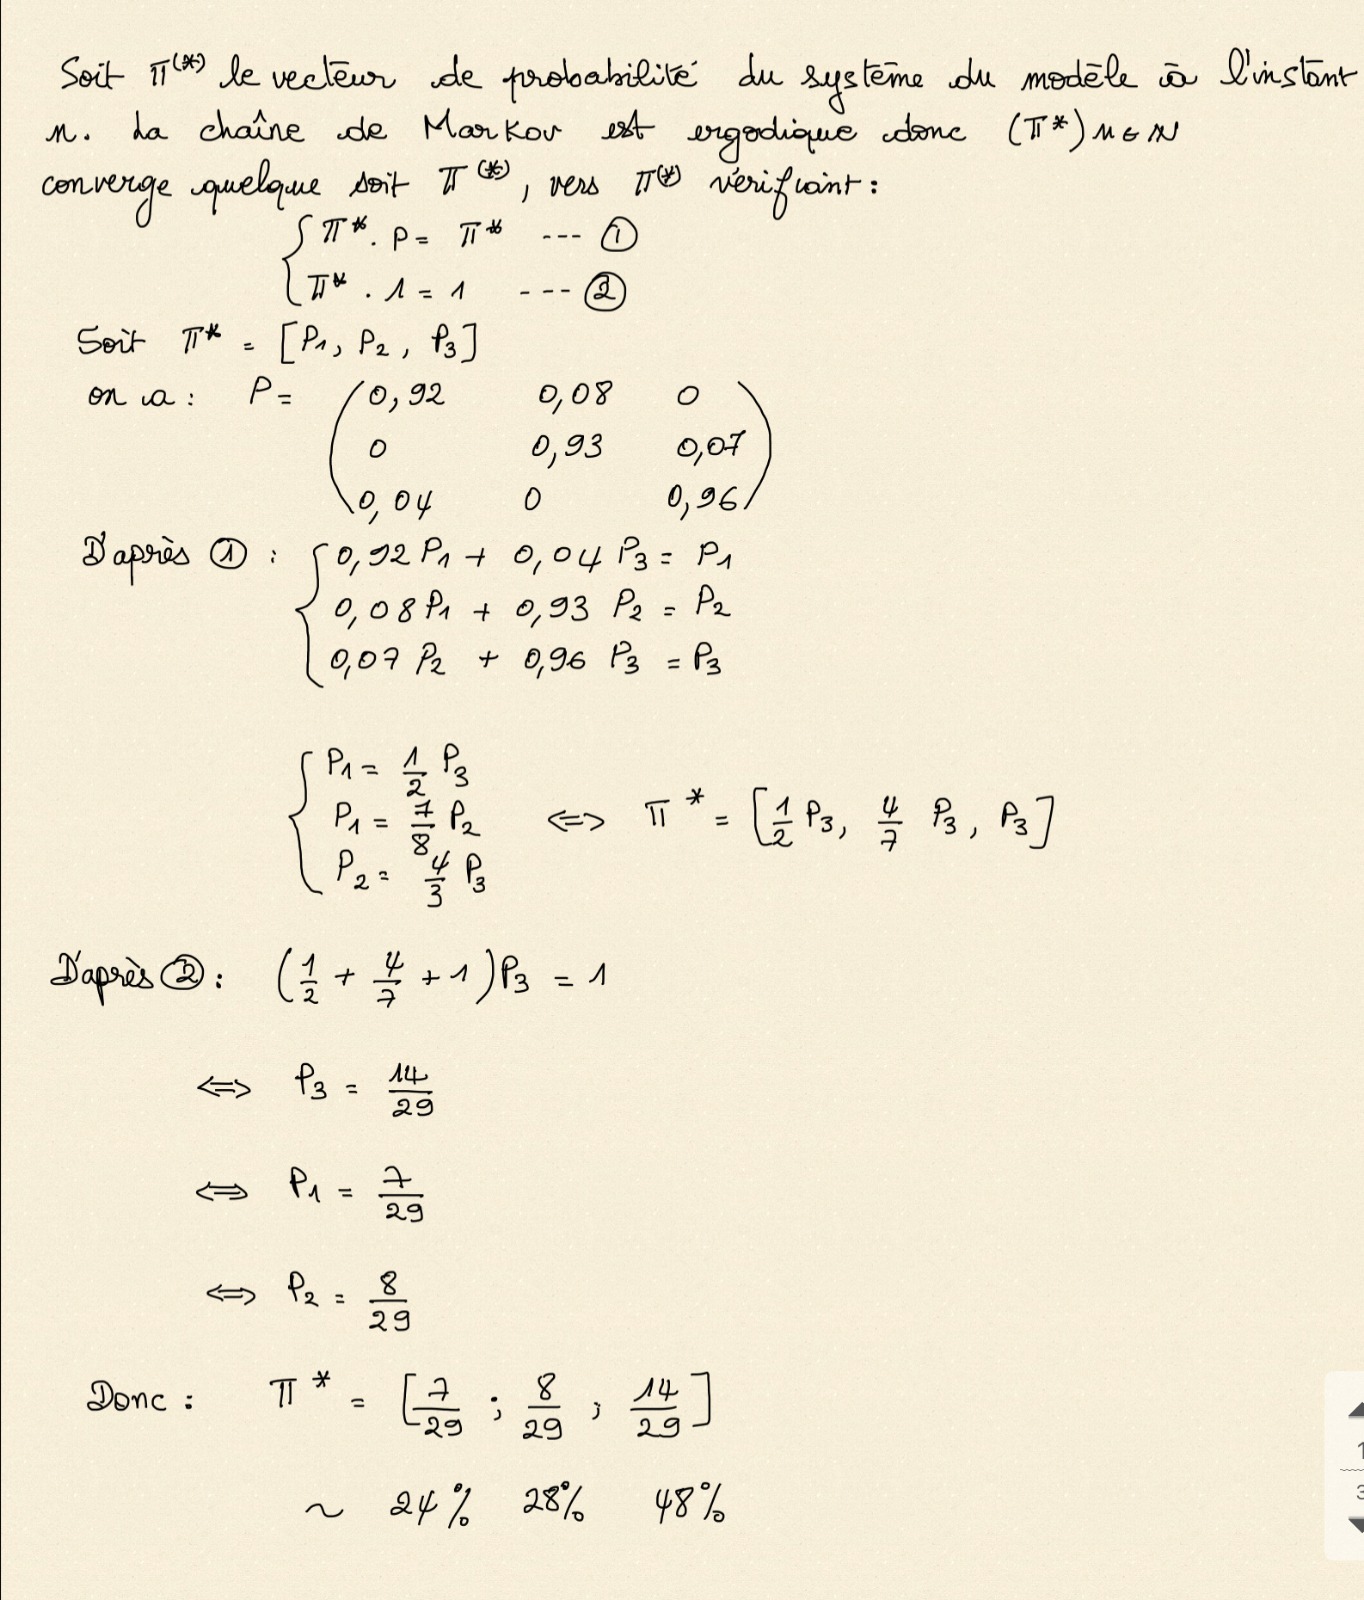 Soit π^(*) le vecteur de probabilité du système du modèle à l'instant
n. La chaîne de Markov est ergodique donc (π*) n∈ℕ
converge quelque soit π^(*), vers π^(*) vérifiant :
{ π* . P = π* --- ①
{ π* . 1 = 1 --- ②
Soit π* = [P₁, P₂, P₃]
on a : P = (0,92 0,08 0
0 0,93 0,07
0,04 0 0,96)
D'après ① : { 0,92 P₁ + 0,04 P₃ = P₁
0,08 P₁ + 0,93 P₂ = P₂
0,07 P₂ + 0,96 P₃ = P₃
{ P₁ = 1/2 P₃
P₁ = 7/8 P₂ <=> π* = [1/2 P₃, 4/7 P₃, P₃]
P₂ = 4/3 P₃
D'après ② : (1/2 + 4/7 + 1) P₃ = 1
<=> P₃ = 14/29
<=> P₁ = 7/29
<=> P₂ = 8/29
Donc : π* = [7/29 ; 8/29 ; 14/29]
~ 24% 28% 48%
1
3